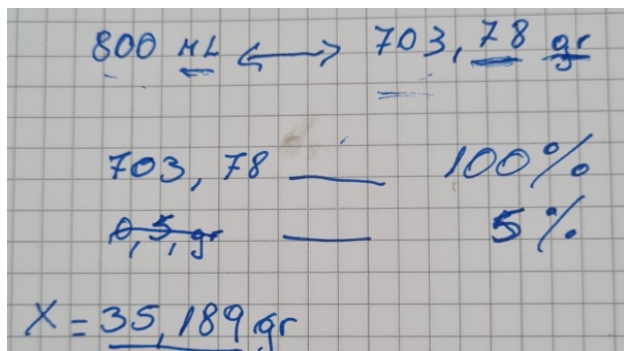 800 ML <--> 703,78 gr
703,78 — 100%
0,5,gr — 5%
X = 35,189 gr